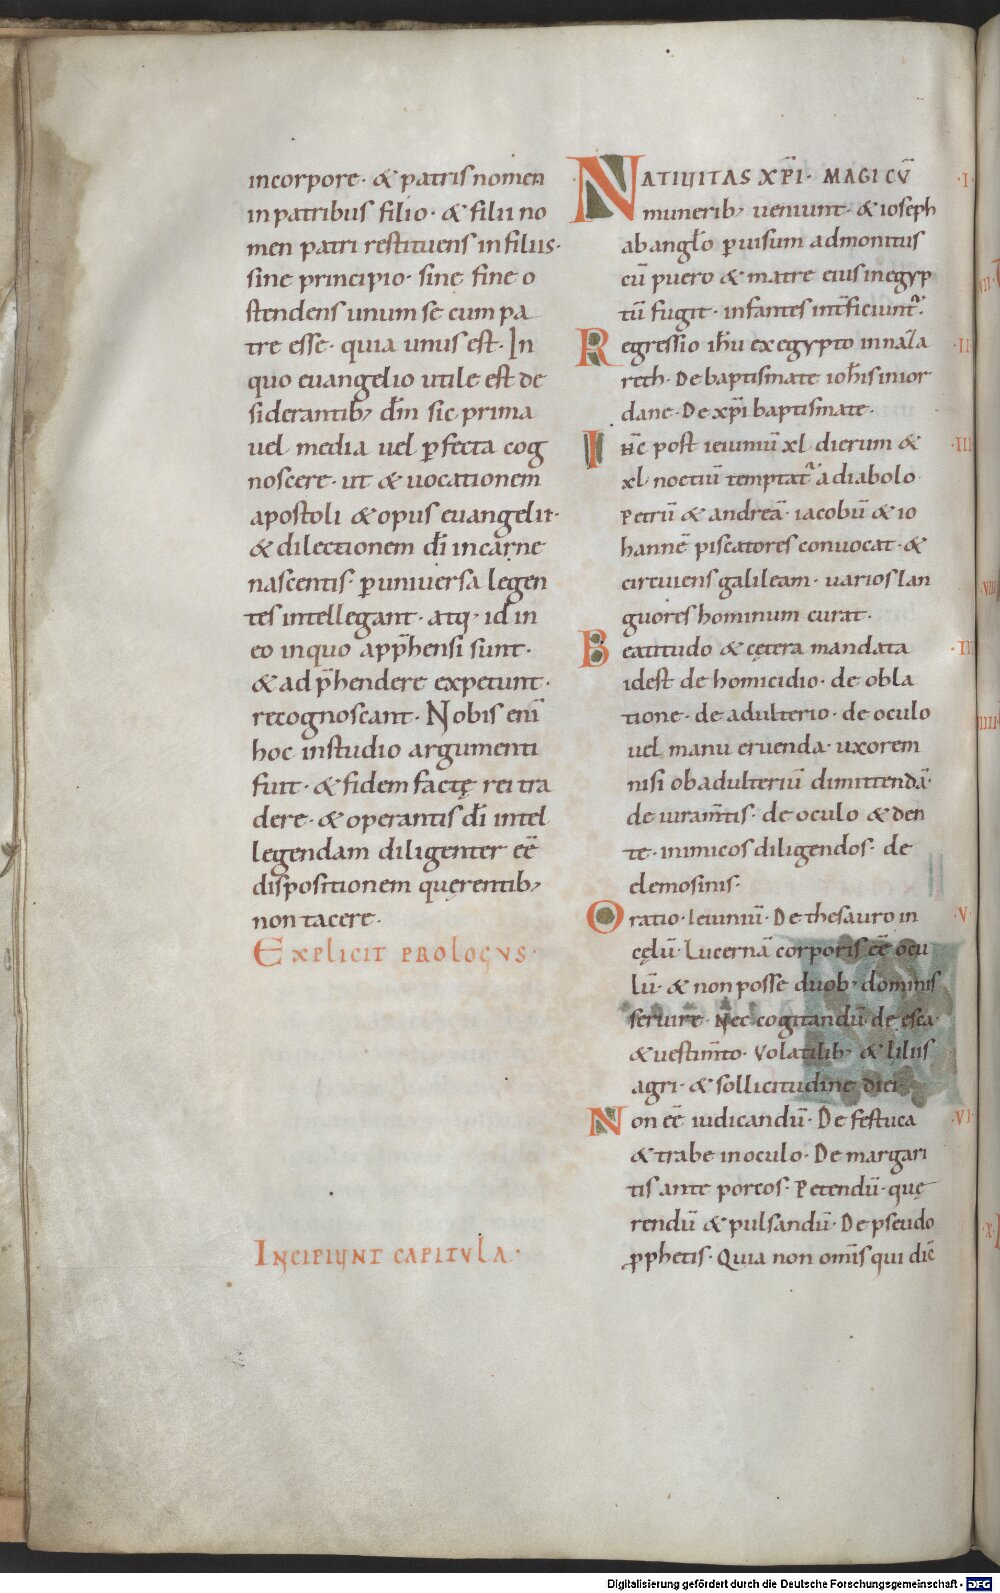 incorpore · & patris nomen
in patribus filio · & filii no
men patri restituens in filiis ·
sine principio · sine fine o
stendens unum se cum pa
tre esse · quia unus est · In
quo euangelio utile est de
siderantib; dm̄ sic prima
uel media uel ꝑfecta cog
noscere · ut & uocationem
apostoli & opus euangelii ·
& dilectionem dī in carne
nascentis · ꝑ uniuersa legen
tes intellegant · atq· id in
eo in quo app̄hensi sunt ·
& adp̄hendere expetunt ·
recognoscant · Nobis enī
hoc in studio argumenti
fuit · & fidem factę rei tra
dere · & operantis dī intel
legendam diligenter eē
dispositionem quęrentib;
non tacere ·
Explicit prologus ·
Incipiunt capitula ·
Natiuitas xp̄i · magi cū ·I·
munerib; ueniunt · & ioseph
ab angl̄o ꝑ uisum admonitus
cū puero & matre eius in egyp
tū fugit · infantes int̄ficiunt᷑ ·
Regressio ih̄u ex egypto in naza ·II·
reth · De baptismate ioh̄is in ior
dane · De xp̄i baptismate ·
Ih̄c post ieiuniū xl · dierum & ·III·
xl · noctiū temptat᷑ a diabolo
petrū & andreā · iacobū & io
hannē piscatores conuocat · &
circuiens galileam · uarios lan
guores hominum curat ·
Beatitudo & cętera mandata
id est de homicidio · de obla
tione · de adulterio · de oculo
uel manu eruenda · uxorem
nisi ob adulteriū dimittendā ·
de iuram̄tis · de oculo & den
te · inimicos diligendos · de
elemosinis ·
Oratio · Ieiuniū · De thesauro in ·V·
cęlū · Lucernā corporis eē ocu
lū · & non posse duob; dominis
seruire · Nec cogitandū de esca
& uestim̄to · Volatilib; & liliis
agri · & sollicitudine diei ·
Non eē iudicandū · De festuca ·VI·
& trabe in oculo · De margari
tis ante porcos · Petendū · quę
rendū & pulsandū · De pseudo
ꝓphetis · Quia non om̄s qui dic̄
Digitalisierung gefördert durch die Deutsche Forschungsgemeinschaft - DFG